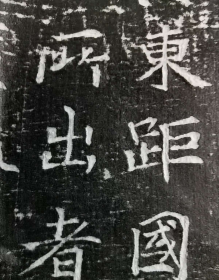 東距國
所出者